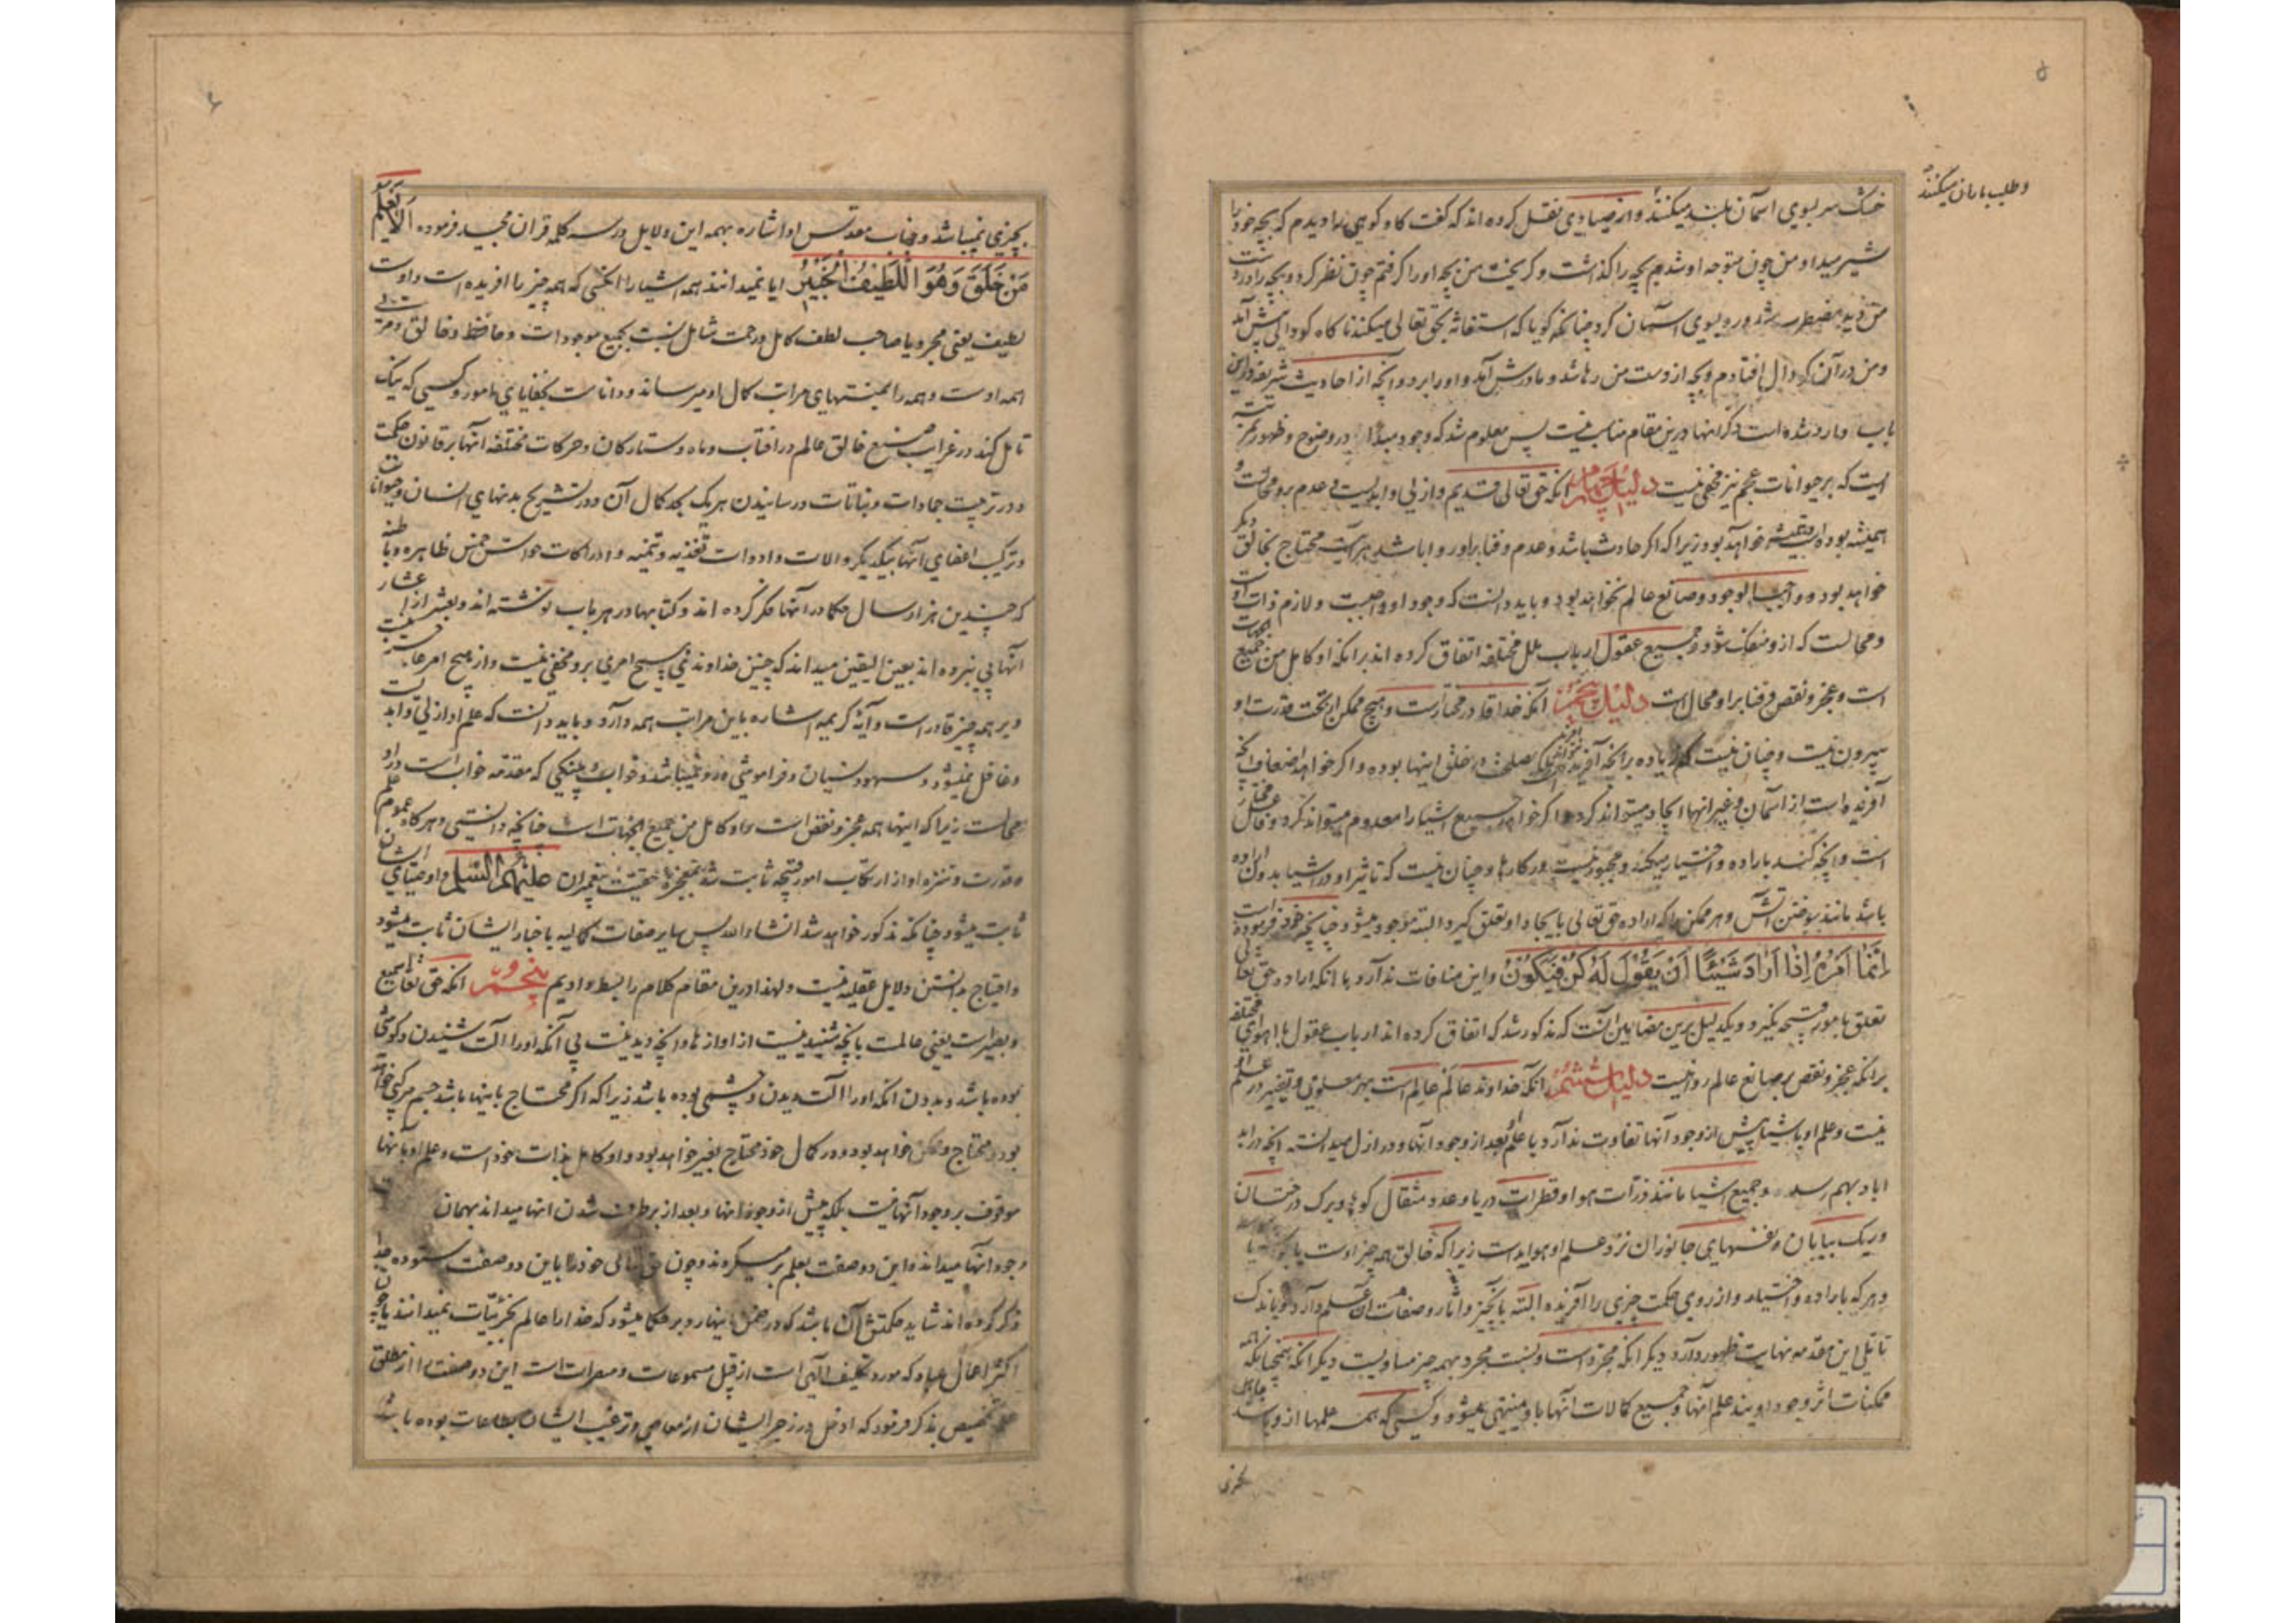 ۵
و طلب باران میکنند
خشک سر بسوی اسمان بلند میکنند و از صیادی نقل کرده اند که گفت کاو کوهی را دیدم که بچه خود را
شیر میداد من چون متوجه او شدم بچه را گذاشت و گریخت من بچه او را گرفتم چون نظر کرد و بچه را در دست
من دید مضطرب شد و رو بسوی اسمان کرد چنانکه گویا که استغاثه بحق تعالی میکند ناگاه گودالی پیش آمد
و من در آن گودال افتادم و بچه از دست من رها شد و مادرش آمد و او را برد و آنچه از احادیث شریفه در این
باب وارد شده است ذکر انها درین مقام مناسب نیست پس معلوم شد که وجود مبدأ در وضوح و ظهور بمرتبه
ایست که بر حیوانات عجم نیز مخفی نیست دلیل چهارم انکه حق تعالی قدیم و ازلی و ابدیست و عدم برو محالست و
همیشه بوده است و همیشه خواهد بود زیرا که اگر حادث باشد و عدم و فنا بر او روا باشد هر آینه محتاج بخالق دیگر
خواهد بود و واجب الوجود و صانع عالم نخواهد بود و باید دانست که وجود او واجبست و لازم ذات او است
و محالست که ازو منفک شود و جمیع عقول ارباب ملل مختلفه اتفاق کرده اند بر انکه او کامل من جمیع الجهات
است و عجز و نقص و فنا بر او محال است دلیل پنجم انکه خدا قادر مختارست و هیچ ممکن از تحت قدرت او
بیرون نیست و چنان نیست که زیاده بر انچه آفریده نتواند آفرید مصلحت در خلق اینها بوده و اگر خواهد اضعاف انچه
آفریده است از اسمان و غیر انها ایجاد میتواند کرد و اگر خواهد جمیع اشیا را معدوم میتواند کرد و فاعل مختار
است و انچه کند باراده و اختیار میکند و مجبور نیست در کارها و چنان نیست که تاثیر او در اشیا بدون اراده
باشد مانند سوختن اتش و هر ممکن را که اراده حق تعالی بایجاد او تعلق گیرد البته موجود میشود چنانچه خود فرموده است
إنَّمَا أَمْرُهُ إِذَا أَرَادَ شَيْئًا أَنْ يَقُولَ لَهُ كُنْ فَيَكُونُ و این منافات ندارد با انکه اراده حق تعالی
تعلق بامور قبیحه نگیرد و یکدلیل برین مضامین انست که مذکور شد که اتفاق کرده اند ارباب عقول با اهوای مختلفه
بر انکه عجز و نقص بر صانع عالم روا نیست دلیل ششم انکه خداوند عالم عالم است بهر معلومی و تغییر در علم او
نیست و علم او باشیا پیش از وجود آنها تفاوت ندارد با علم بعد از وجود آنها و در ازل میدانسته انچه در ابد
اباد بهم رسد و جمیع اشیا مانند ذرات هوا و قطرات دریا و عدد مثقال کوه و برک درختان
و ریک بیابان و نفسهای جانوران نزد علم او هویداست زیرا که خالق همه چیز اوست
و هر که باراده و اختیار و از روی حکمت چیزی را آفریند البته بآنچیز و آثار و صفات ان علم دارد و باندک
تاملی این مقدمه نهایت ظهور دارد دیگر انکه مجرد است و نسبت مجرد بهمه چیز مساویست دیگر انکه همچنانکه همه
ممکنات اثر وجود اویند علم آنها و جمیع کمالات آنها باو منتهی میشود و کسی که همه علمها ازو باشد
بچیزی
۶
بچیزی نمیباشد و جناب مقدس او اشاره بهمه این دلایل در سه کلمه قران مجید فرموده أَلَا يَعْلَمُ
مَنْ خَلَقَ وَهُوَ اللَّطِيفُ الْخَبِيرُ ایا نمیداند همه اشیا را انکسی که همه چیز را افریده است و اوست
لطیف یعنی مجرد یا صاحب لطف کامل و رحمت شامل نسبت بجمیع موجودات و حافظ و خالق و مربی
همه اوست و همه را بمنتهای مراتب کمال او میرساند و داناست بخفایای امور و کسی که نیک
تامل کند در غرایب صنع خالق عالم در افتاب و ماه و ستارکان و حرکات مختلفه انها بر قانون حکمت
و در تربیت جمادات و نباتات و رسانیدن هریک بحد کمال آن و در تشریح بدنهای انسان و حیوانات
و ترکیب اعضای آنها بیکدیگر و الات و ادوات تغذیه و تنمیه و ادراکات حواس خمس ظاهره و باطنه
که چندین هزار سال حکما در انها فکر کرده اند و کتابها در هر باب نوشته اند و بعشر از اعشار
انها پی نبرده اند بعین الیقین میداند که چنین خداوندی هیچ امری برو مخفی نیست و از هیچ امر عاجز نیست
و بر همه چیز قادر است و آیه کریمه اشاره باین مراتب همه دارد و باید دانست که علم او ازلی و ابدیست
و غافل نمیشود و سهو و نسیان و فراموشی درو نمیباشد و خواب و پینکی که مقدمه خواب است در او
محالست زیرا که اینها همه عجز و نقص است و او کامل من جمیع الجهات است چنانچه دانستی و هر گاه عموم علم
و قدرت و تنزه او از ارتکاب امور قبیحه ثابت شد بمعجزه حقیت پیغمبران علیهم السلام و اوصیای ایشان
ثابت میشود چنانکه مذکور خواهد شد انشاء الله پس سایر صفات کمالیه باخبار ایشان ثابت میشود
و احتیاج بدانستن دلایل عقلیه نیست و لهذا درین مقام کلام را بسط ندادیم پنجم انکه حق تعالی سمیع
و بصیر است یعنی عالمست بانچه شنیدنیست از اوازها و انچه دیدنیست بی آنکه او را آلت شنیدن و گوشی
بوده باشد و بدون انکه او را آلت دیدن و چشمی بوده باشد زیرا که اگر محتاج باینها باشد جسم مرکبی خواهد
بود و محتاج و ممکن خواهد بود و در کمال خود محتاج بغیر خواهد بود و او کامل بذات خود است و علم او بانها
موقوف بر وجود آنها نیست بلکه پیش از وجود انها و بعد از برطرف شدن انها میداند بهمان
وجود انها میداند و این دو صفت بعلم برمیگردند و چون حق تعالی خود را باین دو صفت ستوده
ذکر کرده اند شاید حکمتش آن باشد که در ضمن اینها رد بر حکما میشود که خدا را عالم بجزئیات نمیدانند یا چون
اکثر اعمال عباد که مورد تکلیف الهی است از قبیل مسموعات و مبصرات است این دو صفت را از مطلق
علم تخصیص بذکر فرمود که ادخل در زجر ایشان از معاصی و ترغیب ایشان بطاعات بوده باشد